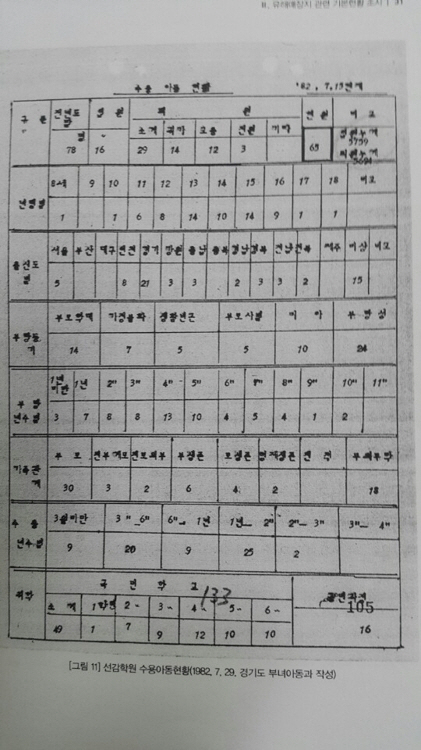 Ⅱ. 유해매장지 관련 기본현황 조사 | 31
수용 아동 현황 '82. 7. 13 현재
구분 전월 입원 퇴원 현원 비고
소계 귀가 전원 기타
78 16 29 14 12 3 65 5759
5694
8세 9 10 11 12 13 14 15 16 17 18 비고
1 1 6 8 14 10 14 9 1 1
출신도별 서울 부산 대구 인천 경기 강원 충남 충북 경남 경북 전남 전북 제주 미상 비고
5 8 21 3 3 2 3 3 2 15
부랑동기 부모학대 가정불화 생활빈곤 부모사별 미아 부랑성
14 7 5 5 10 24
부랑연수별 1년미만 1년 2" 3" 4" 5" 6" 7" 8" 9" 10" 11"
3 7 8 8 13 10 4 5 4 1 2
가족관계 부모 친부계모 친모계부
30 3 2 6 4 2 18
수용연수별 3월미만 3"_6" 6"_1년 1년_2" 2"_3" 3"_4"
9 20 9 25 2
취학 국민학교
133 105
소계 1학년 2~ 3~ 4~ 5~ 6~
49 1 7 9 12 10 10 16
[그림 11] 선감학원 수용아동현황(1982. 7. 29. 경기도 부녀아동과 작성)